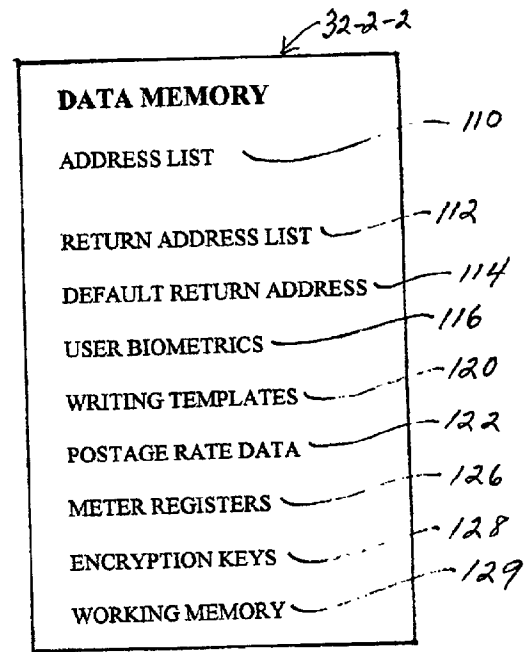 32-2-2
DATA MEMORY
ADDRESS LIST 110
RETURN ADDRESS LIST 112
DEFAULT RETURN ADDRESS 114
USER BIOMETRICS 116
WRITING TEMPLATES 120
POSTAGE RATE DATA 122
METER REGISTERS 126
ENCRYPTION KEYS 128
WORKING MEMORY 129